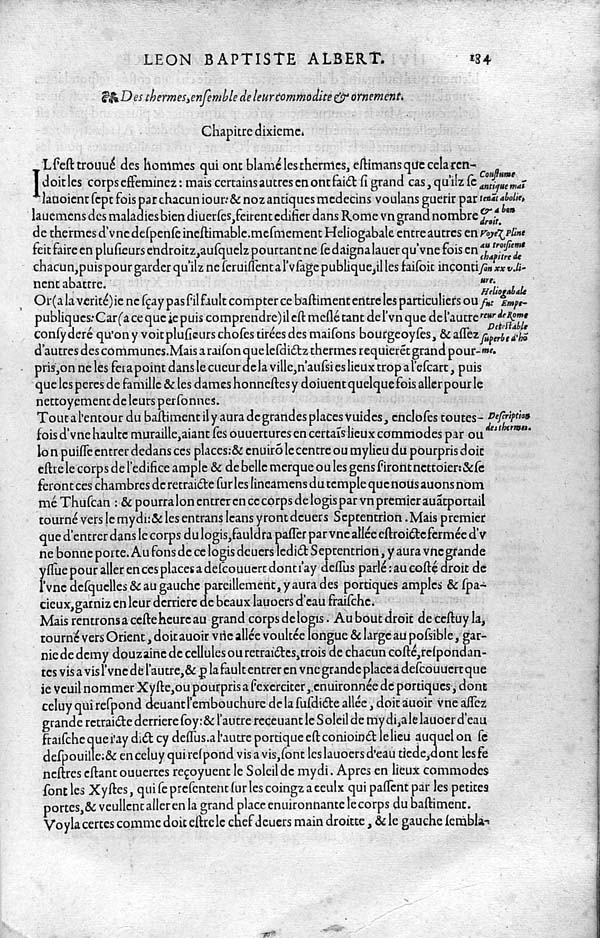 LEON BAPTISTE ALBERT. 184
Des thermes, ensemble de leur commodite & ornement.
Chapitre dixieme.
IL s'est trouué des hommes qui ont blamé les thermes, estimans que cela ren-
doit les corps effeminez: mais certains autres en ont faict si grand cas, qu'ilz se
lauoient sept fois par chacun iour: & noz antiques medecins voulans guerir par
lauemens des maladies bien diuerses, feirent edifier dans Rome vn grand nombre
de thermes d'vne despense inestimable. mesmement Heliogabale entre autres en
feit faire en plusieurs endroitz, ausquelz pourtant ne se daigna lauer qu'vne fois en
chacun, puis pour garder qu'ilz ne seruissent a l'vsage publique, il les faisoit inconti
nent abattre.
Or (a la verité) ie ne sçay pas s'il fault compter ce bastiment entre les particuliers ou
publiques: Car (a ce que ie puis comprendre) il est meslé tant de l'vn que de l'autre
consyderé qu'on y voit plusieurs choses tirées des maisons bourgeoyses, & assez
d'autres des communes. Mais a raison que lesdictz thermes requierēt grand pour-
pris, on ne les fera point dans le cueur de la ville, n'aussi es lieux trop a l'escart, puis
que les peres de famille & les dames honnestes y doiuent quelque fois aller pour le
nettoyement de leurs personnes.
Tout a l'entour du bastiment il y aura de grandes places vuides, encloses toutes-
fois d'vne haulte muraille, aiant ses ouuertures en certaīs lieux commodes par ou
lon puisse entrer dedans ces places: & enuirō le centre ou mylieu du pourpris doit
estre le corps de l'edifice ample & de belle merque ou les gens s'iront nettoier: & se
feront ces chambres de retraicte sur les lineamens du temple que nous auons nom
mé Thuscan: & pourra lon entrer en ce corps de logis par vn premier auātportail
tourné vers le mydi: & les entrans leans yront deuers Septentrion. Mais premier
que d'entrer dans le corps du logis, fauldra passer par vne allée estroicte fermée d'v
ne bonne porte. Au fons de ce logis deuers ledict Septentrion, y aura vne grande
yssue pour aller en ces places a descouuert dont i'ay dessus parlé: au costé droit de
l'vne desquelles & au gauche pareillement, y aura des portiques amples & spa-
cieux, garniz en leur derriere de beaux lauoers d'eau fraische.
Mais rentrons a ceste heure au grand corps de logis. Au bout droit de cestuy la,
tourné vers Orient, doit auoir vne allée voultée longue & large au possible, gar-
nie de demy douzaine de cellules ou retraictes, trois de chacun costé, respondan-
tes vis a vis l'vne de l'autre, & ꝑ la fault entrer en vne grande place a descouuert que
ie veuil nommer Xyste, ou pourpris a s'exerciter, enuironnée de portiques, dont
celuy qui respond deuant l'embouchure de la susdicte allée, doit auoir vne assez
grande retraicte derriere soy: & l'autre receuant le Soleil de mydi, a le lauoer d'eau
fraische que i'ay dict cy dessus. a l'autre portique est conioinct le lieu auquel on se
despouille: & en celuy qui respond vis a vis, sont les lauoers d'eau tiede, dont les fe
nestres estant ouuertes reçoyuent le Soleil de mydi. Apres en lieux commodes
sont les Xystes, qui se presentent sur les coingz a ceulx qui passent par les petites
portes, & veullent aller en la grand place enuironnante le corps du bastiment.
Voyla certes comme doit estre le chef deuers main droitte, & le gauche sembla-
Coustume
antique maī
tenāt abolie,
& a bon
droit.
Voyez Pline
au troisieme
chapitre de
son xxv. li-
ure.
Heliogabale
fut Empe-
reur de Rome
Detestable
superbe d'hō
me.
Description
des thermes.